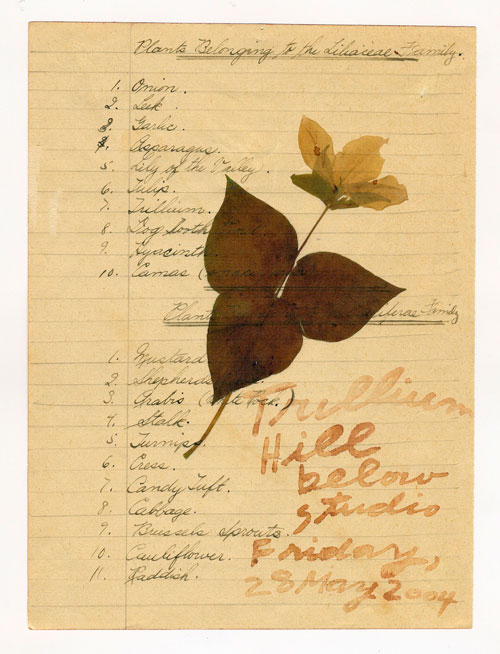 Plants Belonging to the Liliaceae Family.
1. Onion.
2. Leek.
3. Garlic.
4. Asparagus.
5. Lily of the Valley.
6. Tulip.
7. Trillium.
8. Dog Tooth
9. Hyacinth
10. Camas (
Plants Family
1. Mustard
2. Shepherds
3. Arabis ( )
4. Stalk.
5. Turnips.
6. Cress.
7. Candy Tuft.
8. Cabbage.
9. Brussels Sprouts.
10. Cauliflower.
11. Raddish.
Trullium
Hill
below
studio
Friday,
28 May 2004